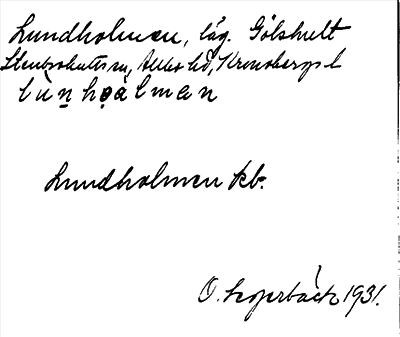 Lundholmen, läg. Gölshult
Stenbrohults sn, Allbo hd, Kronobergs l
lùn̠họàlman
Lundholmen kb.
O. Lagerbäck 1931.